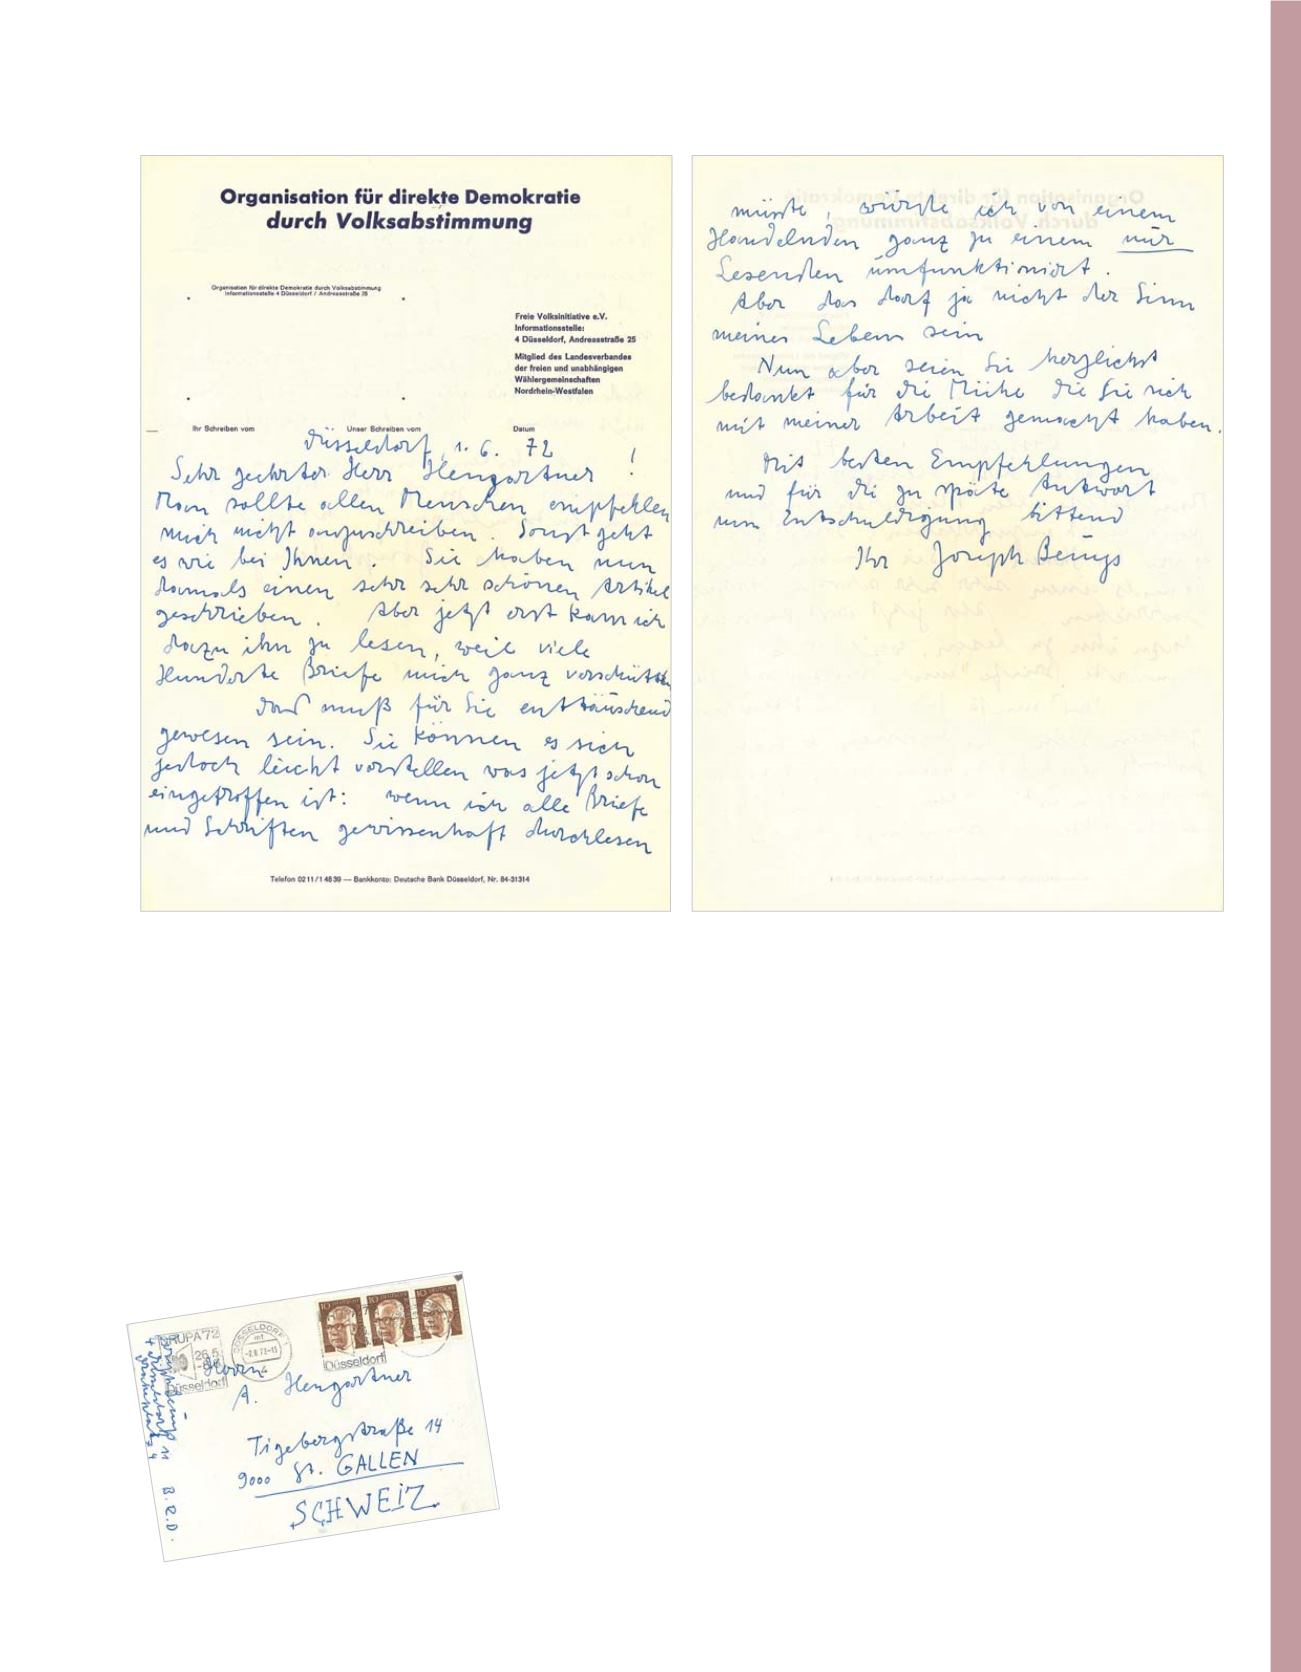 Organisation für direkte Demokratie
durch Volksabstimmung
Organisation für direkte Demokratie durch Volksabstimmung
Informationsstelle 4 Düsseldorf / Andreasstraße 25
Freie Volksinitiative e.V.
Informationsstelle:
4 Düsseldorf, Andreasstraße 25
Mitglied des Landesverbandes
der freien und unabhängigen
Wählergemeinschaften
Nordrhein-Westfalen
Ihr Schreiben vom Unser Schreiben vom Datum
Düsseldorf, 1. 6. 72
Sehr geehrter Herr Hengartner !
Man sollte allen Menschen empfehlen
mich nicht anzuschreiben. Sonst geht
es wie bei Ihnen. Sie haben nun
damals einen sehr sehr schönen Artikel
geschrieben. Aber jetzt erst kam ich
dazu ihn zu lesen, weil viele
Hunderte Briefe mich ganz verschütten
Das muß für Sie enttäuschend
gewesen sein. Sie können es sich
jedoch leicht vorstellen was jetzt schon
eingetroffen ist: wenn ich alle Briefe
und Schriften gewissenhaft durchlesen
Telefon 0211/14839 — Bankkonto: Deutsche Bank Düsseldorf, Nr. 84-31314
müsste, würde ich von einem
Handelnden ganz zu einem nur
Lesenden umfunktioniert.
Aber das darf ja nicht der Sinn
meines Lebens sein
Nun aber seien Sie herzlichst
bedankt für die Mühe die Sie sich
mit meiner Arbeit gemacht haben.
Mit besten Empfehlungen
und für die zu späte Antwort
um Entschuldigung bittend
Ihr Joseph Beuys
DRUPA 72
26.5.
Düsseldorf
DÜSSELDORF 1
mt
4
10 10 10
Düsseldorf
Herrn
A. Hengartner
Tigerbergstraße 14
9000 St. GALLEN
SCHWEIZ
Joseph Beuys
4 Düsseldorf 11
Drakeplatz 4
B.R.D.